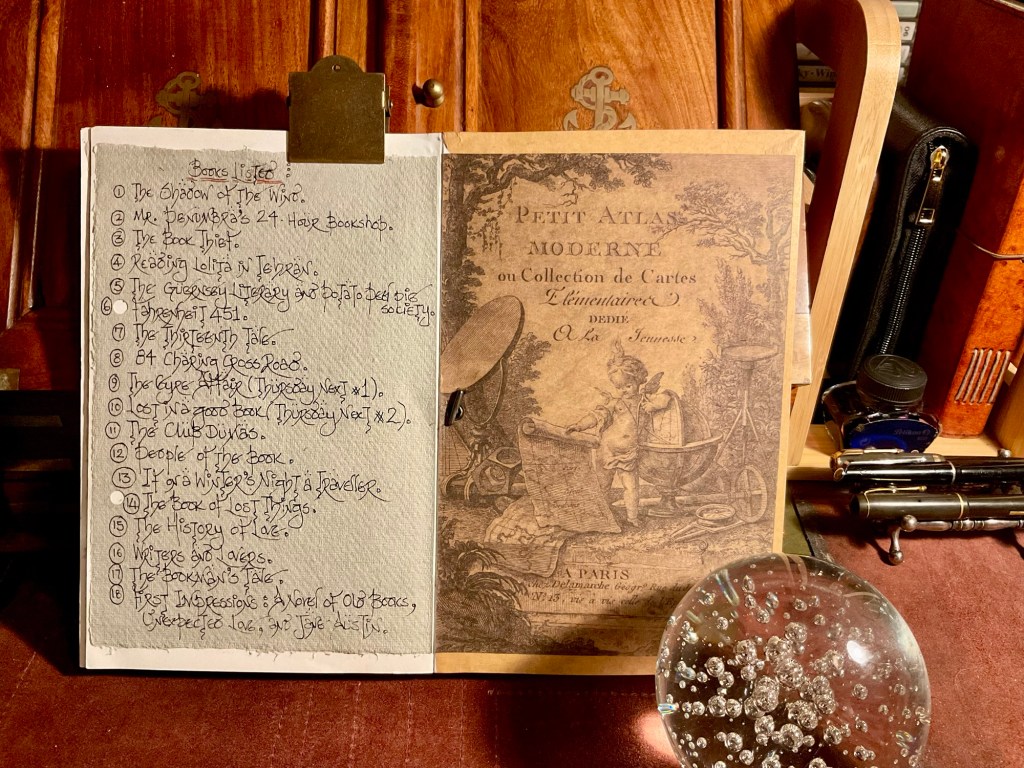 Books Listed :
① The Shadow of the Wind.
② Mr. Penumbra's 24-Hour Bookshop.
③ The Book Thief.
④ Reading Lolita in Tehran.
⑤ The Guernsey Literary and Potato Peel Pie
Society.
⑥ Fahrenheit 451.
⑦ The Thirteenth Tale.
⑧ 84 Charing Cross Road.
⑨ The Eyre Affair (Thursday Next #1).
⑩ Lost in a good Book (Thursday Next #2).
⑪ The Club Dumas.
⑫ People of the Book.
⑬ If on a Winter's Night a Traveller.
⑭ The Book of Lost Things.
⑮ The History of Love.
⑯ Writers and Lovers.
⑰ The Bookman's Tale.
⑱ First Impressions : A Novel of Old Books,
Unexpected Love, and Jane Austin.
PETIT ATLAS
MODERNE
ou Collection de Cartes
Elémentaires
DEDIÉ
A La Jeunesse
A PARIS
Chez Delamarche
N.º 13, vis à vis